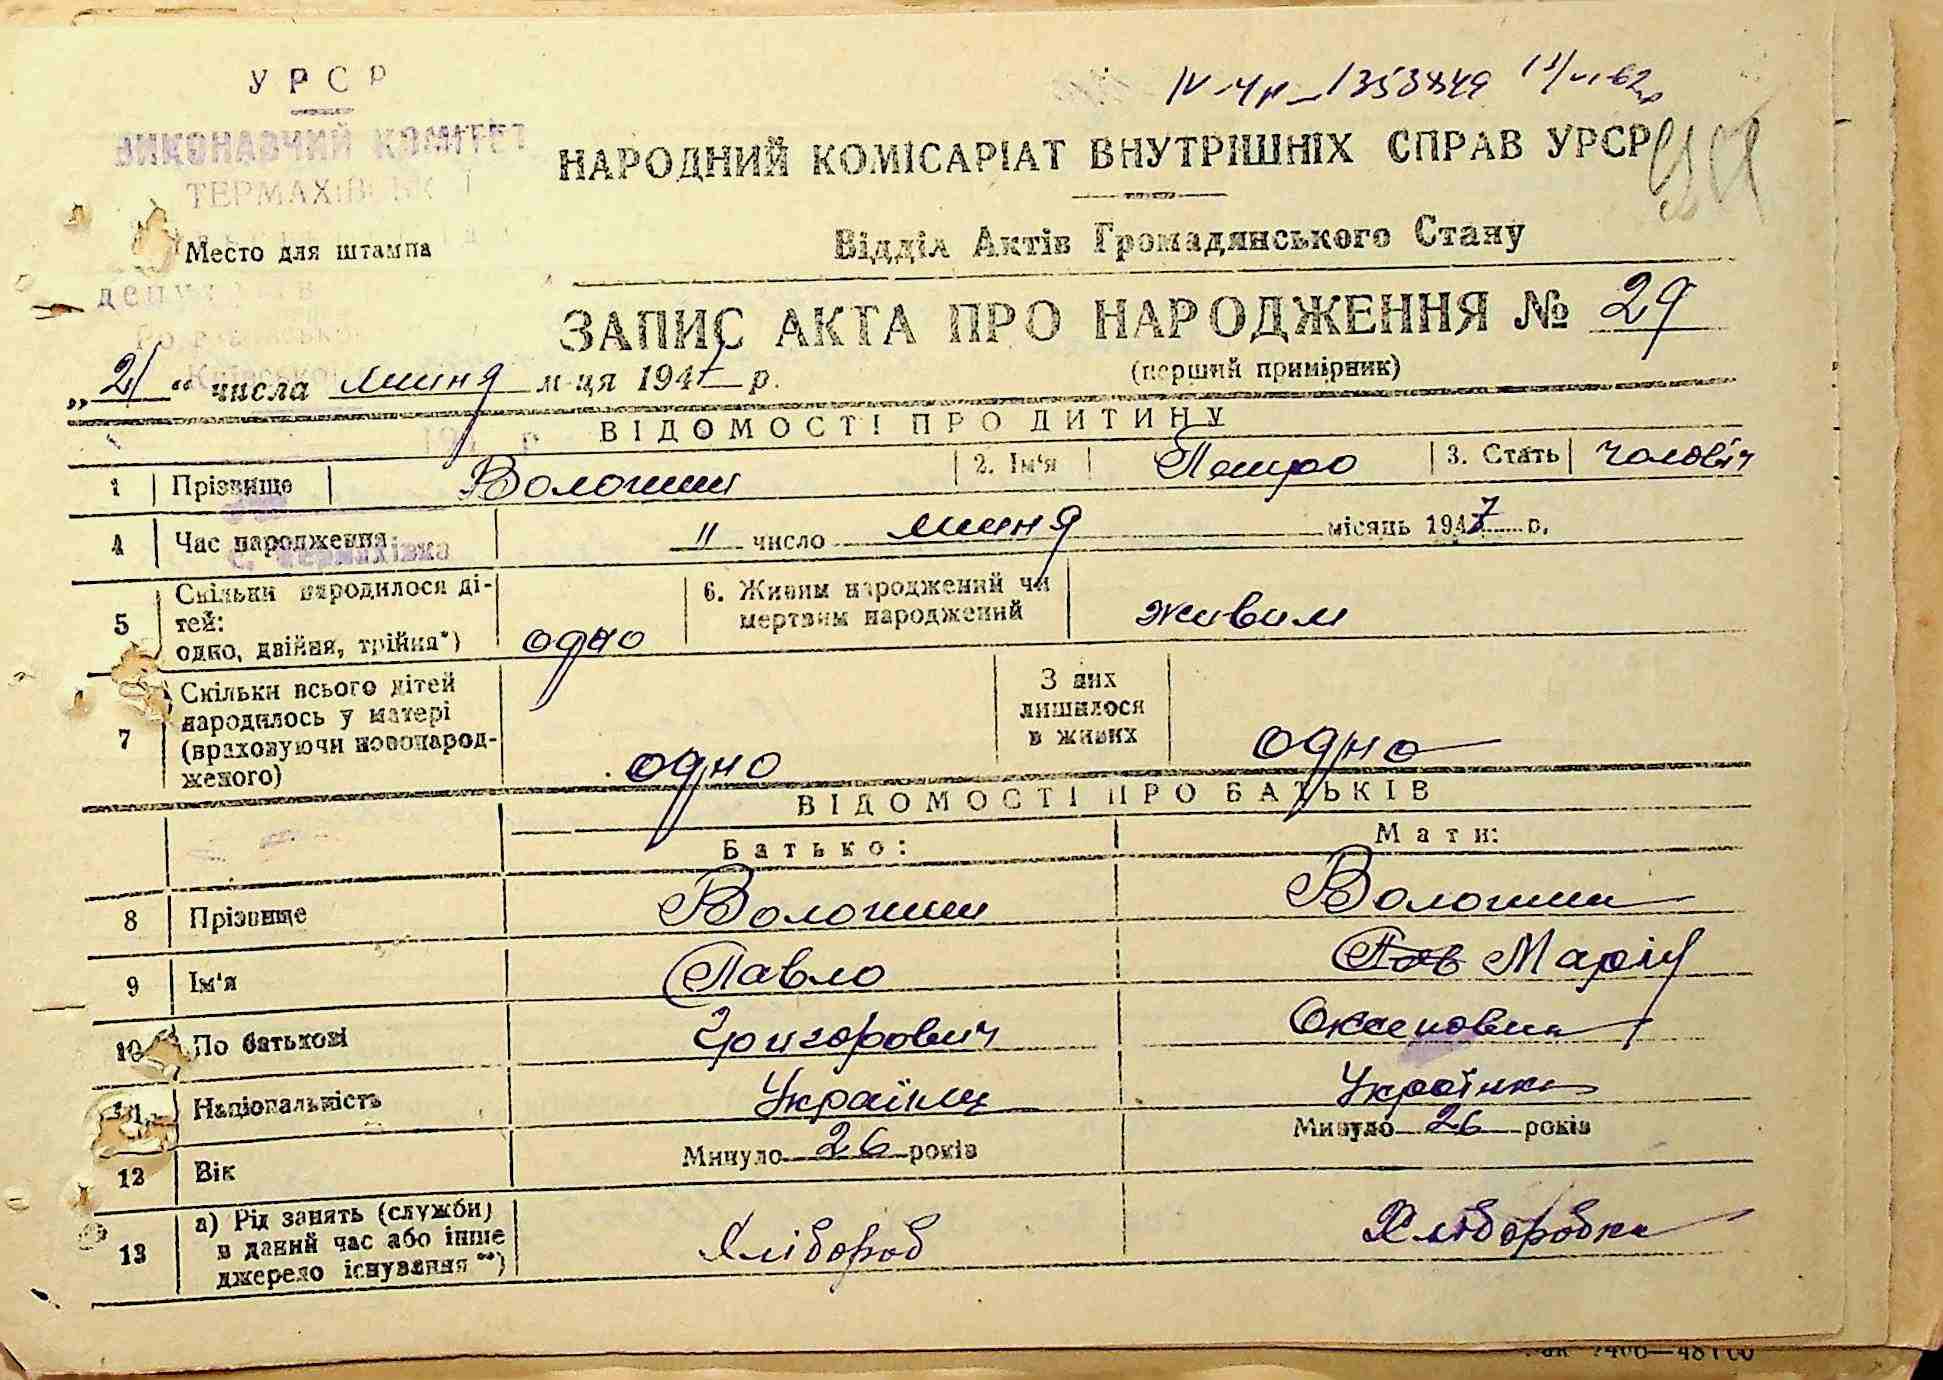 УРСР
ВИКОНАВЧИЙ КОМІТЕТ
ТЕРМАХІВСЬКОЇ
Место для штампа
депутатів
IV-ЧП
НАРОДНИЙ КОМІСАРІАТ ВНУТРІШНІХ СПРАВ УРСР
Відділ Актів Громадянського Стану
ЗАПИС АКТА ПРО НАРОДЖЕННЯ № 29
(перший примірник)
„21“ числа липня м-ця 1947 р.
ВІДОМОСТІ ПРО ДИТИНУ
1 Прізвище Волошин 2. Ім'я Петро 3. Стать чоловіч
4 Час народження 11 число липня місяць 1947 р.
с. Термахівка
5 Скільки народилося ді-
тей:
одно, двійня, трійня*) одно
6. Живим народжений чи
мертвим народжений живим
7 Скільки всього дітей
народилось у матері
(враховуючи новонарод-
женого) одно
З них
лишилося
в живих одно
ВІДОМОСТІ ПРО БАТЬКІВ
Батько: Мати:
8 Прізвище Волошин Волошин
9 Ім'я Павло Пав Марія
10 По батькові Григорович Оксеновна
11 Національність Українец Українка
12 Вік Минуло 26 років Минуло 26 років
13 а) Рід занять (служби)
в даний час або інше
джерело існування**) Хлібороб Хліборобка